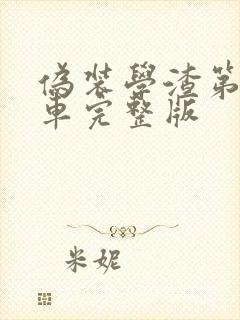 偽装學渣第
車完整版
米妮